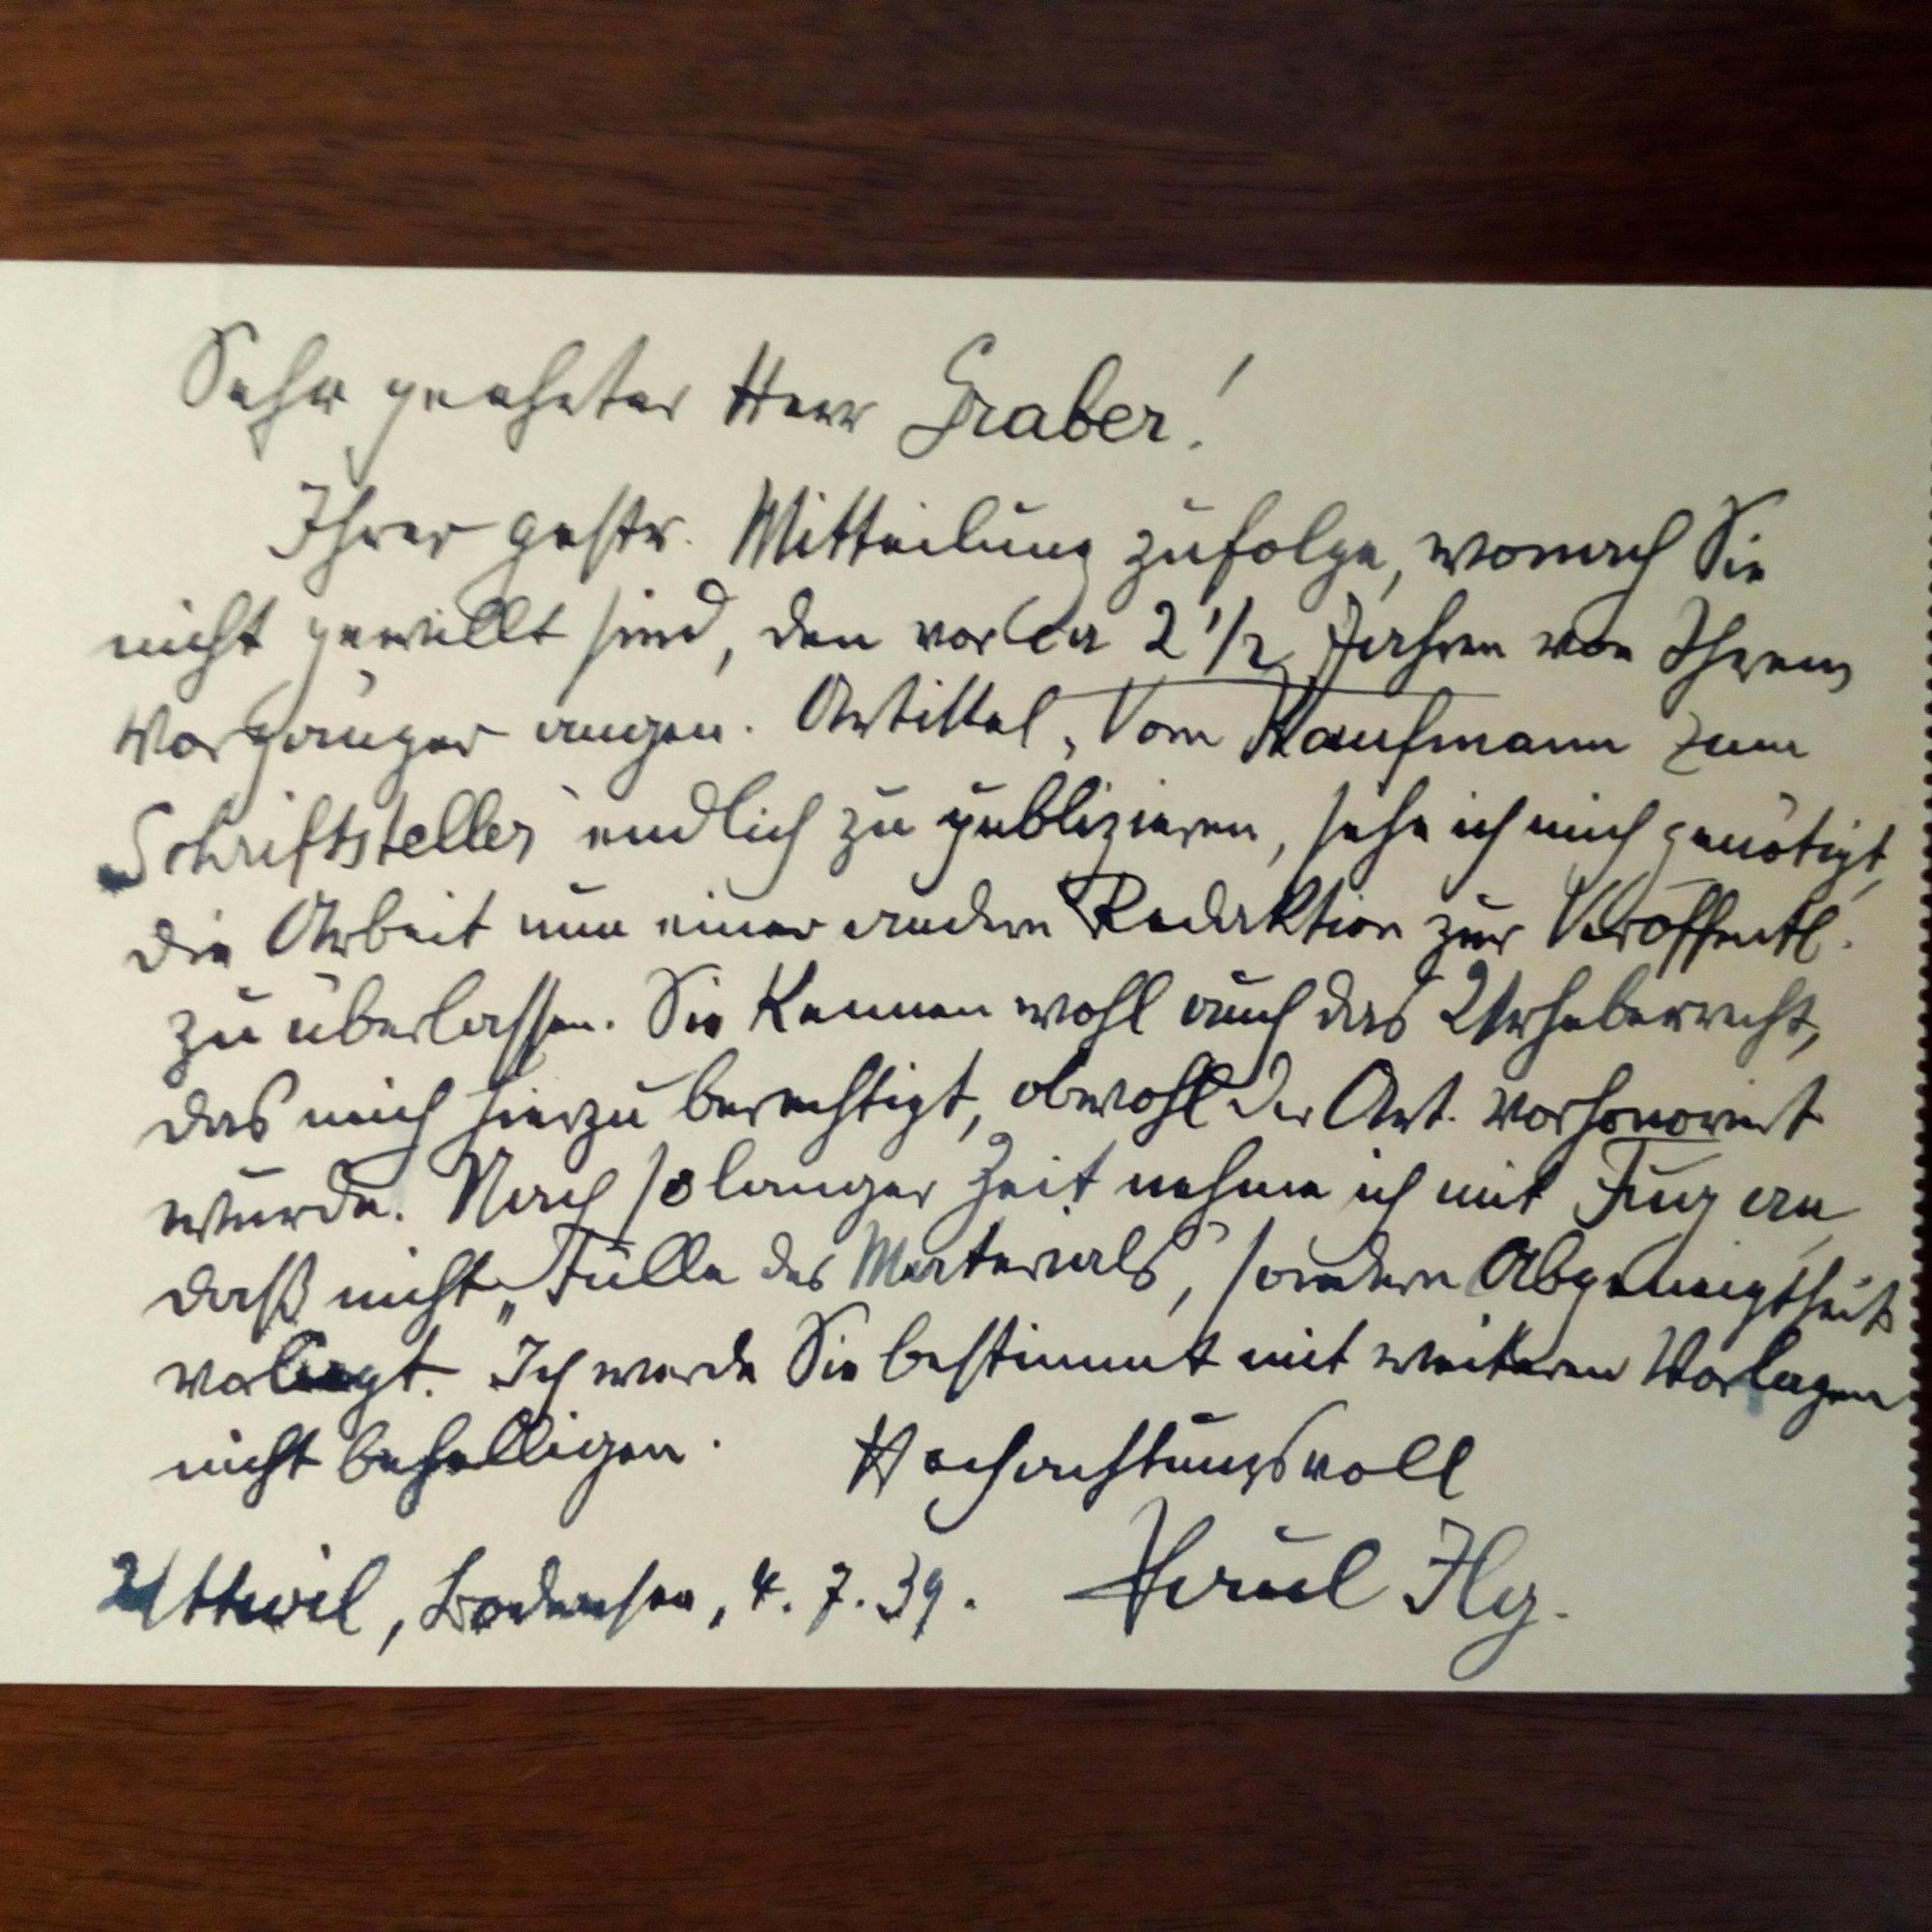 Sehr geehrter Herr Graber!
Ihrer gestr. Mitteilung zufolge, wonach Sie
nicht gewillt sind, den vor ca 2 1/2 Jahren von Ihrem
Vorgänger angen. Artikel „Vom Kaufmann zum
Schriftsteller“ endlich zu publizieren, sehe ich mich genötigt,
die Arbeit nun einer andern Redaktion zur Veröffentl.
zu überlassen. Sie kennen wohl auch das Urheberrecht,
das mich hierzu berechtigt, obwohl der Art. vorhonoriert
wurde. Nach so langer Zeit nehme ich mit Fug an,
daß nicht „Fülle des Materials“, sondern Abgeneigtheit
vorliegt. Ich werde Sie bestimmt mit weiteren Vorlagen
nicht behelligen. Hochachtungsvoll
Uttwil, Bodensee, 4. 7. 39. Paul Ilg.